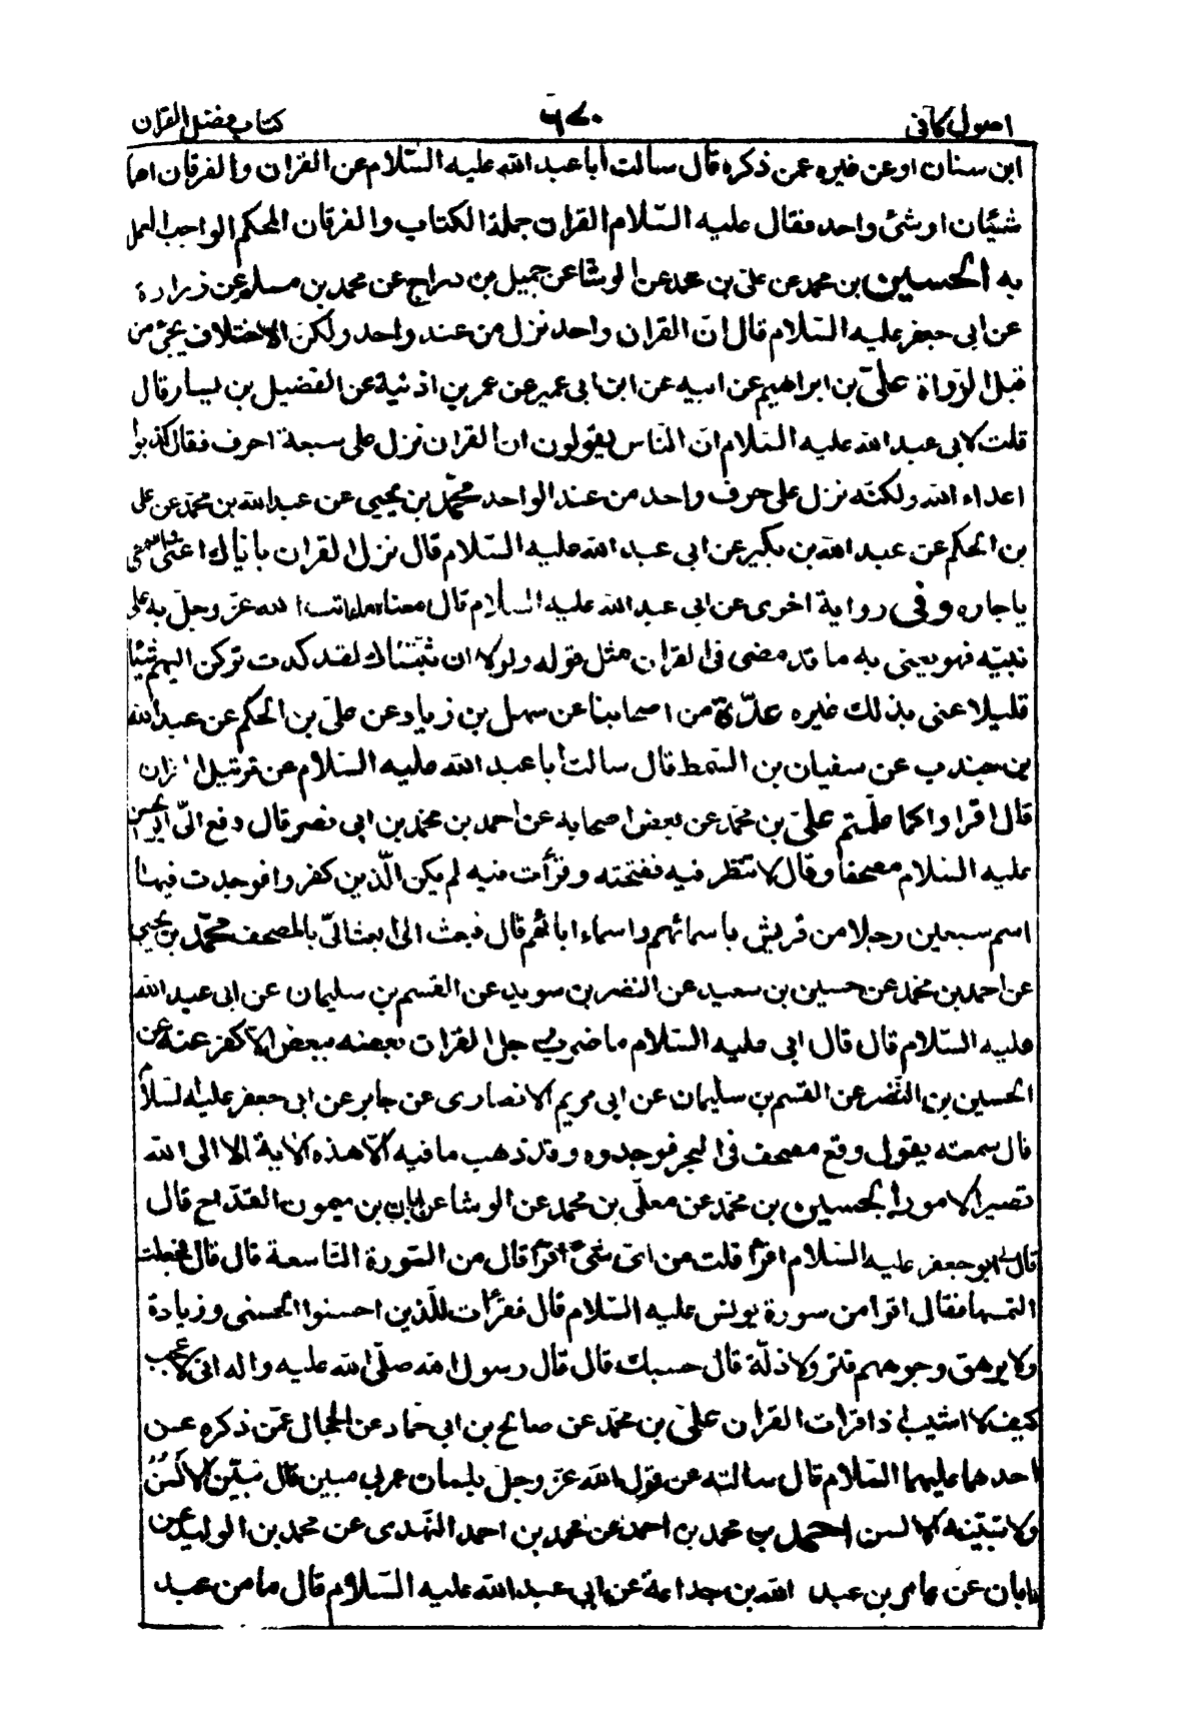 اصول كافى ٦٧٠ كتاب فضل القران
ابن سنان او عن غيره عمن ذكره قال سالت ابا عبد الله عليه السّلام عن القران والفرقان اهما
شيئان او شئ واحد فقال عليه السّلام القران جملة الكتاب والفرقان المحكم الواجب العمل
به الحسين بن محمد عن على بن محمد عن الوشا عن جميل بن دراج عن محمد بن مسلم عن زرارة
عن ابى جعفر عليه السّلام قال ان القران واحد نزل من عند واحد ولكن الاختلاف يجئ من
قبل الرّواة علىّ بن ابراهيم عن ابيه عن ابن ابى عمير عن عمر بن اذنية عن الفضيل بن يسار قال
قلت لابى عبد الله عليه السّلام انّ النّاس يقولون ان القران نزل على سبعة احرف فقال كذبوا
اعداء الله ولكنّه نزل على حرف واحد من عند الواحد محمّد بن يحيى عن عبد الله بن محمّد عن على
بن الحكم عن عبد الله بن بكير عن ابى عبد الله عليه السّلام قال نزل القران باياك اعنى واسمعى
ياجاره وفى رواية اخرى عن ابى عبد الله عليه السلام قال معناه ماعاتب الله عزّ وجلّ به على
نبيّه فهو يعنى به ما قد مضى فى القران مثل قوله ولولا ان ثبّتناك لقد كدت تركن اليهم شيئا
قليلا عنى بذلك غيره عدّة من اصحابنا عن سهل بن زياد عن علىّ بن الحكم عن عبد الله
بن جندب عن سفيان بن السّمط قال سالت ابا عبد الله عليه السّلام عن ترتيل ا نزان
قال اقراوا كما علّمتم علىّ بن محمّد عن بعض اصحابه عن احمد بن محمّد بن ابى نصر قال دفع الىّ ابو الحسن
عليه السّلام مصحفا وقال لا تنظر فيه ففتحته وقرأت فيه لم يكن الّذين كفروا فوجدت فيها
اسم سبعين رجلا من قريش باسمائهم واسماء ابائهم قال فبعث الى ابعث الىّ بالمصحف محمّد بن يحيى
عن احمد بن محمّد عن حسين بن سعيد عن النضر بن سويد عن القسم بن سليمان عن ابى عبد الله
عليه السّلام قال قال ابى عليه السّلام ما ضرب رجل القران بعضه ببعض الا كفر عنه عن
الحسين بن النّضر عن القسم بن سليمان عن ابى مريم الانصارى عن جابر عن ابى جعفر عليه السّلام
قال سمعته يقول وقع مصحف فى البحر فوجدوه وقد ذهب ما فيه الّا هذه الاية الا الى الله
تصير الامور الحسين بن محمّد عن معلّى بن محمد عن الوشا عن ابان بن ميمون القدّاح قال
قال لى ابو جعفر عليه السّلام اقرأ قلت من اىّ شئ اقرأ قال من السّورة التّاسعة قال قال فجعلت
التمسها فقال اقرا من سورة يونس عليه السّلام قال فقرأت للّذين احسنوا الحسنى وزيادة
ولا يرهق وجوههم قتر ولا ذلّة قال حسبك قال قال رسول الله صلّى الله عليه واله انى لاعجب
كيف لا اشيب اذا قرات القران علىّ بن محمّد عن صالح بن ابى حمّاد عن الحجال عمّن ذكره عن
احدهما عليهما السّلام قال سالته عن قول الله عزّ وجلّ بلسان عربى مبين قال يبيّن الالسن
ولا تبيّنه الالسن احمد بن محمد بن احمد عن محمد بن احمد النّهدى عن محمد بن الوليد عن
ابان عن عامر بن عبد الله بن جداعة عن ابى عبد الله عليه السّلام قال ما من عبد